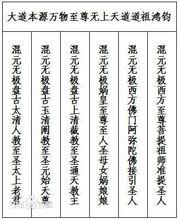 大道本源万物至尊无上天道道祖鸿钧
混元无极盘古太清人教至圣太上老君
混元无极盘古玉清阐教至圣元始天尊
混元无极盘古上清截教至圣通天教主
混元无极娲皇至尊至人圣母女娲娘娘
混元无极西方佛门阿弥陀佛接引圣人
混元无极西方至尊菩提祖师准提圣人